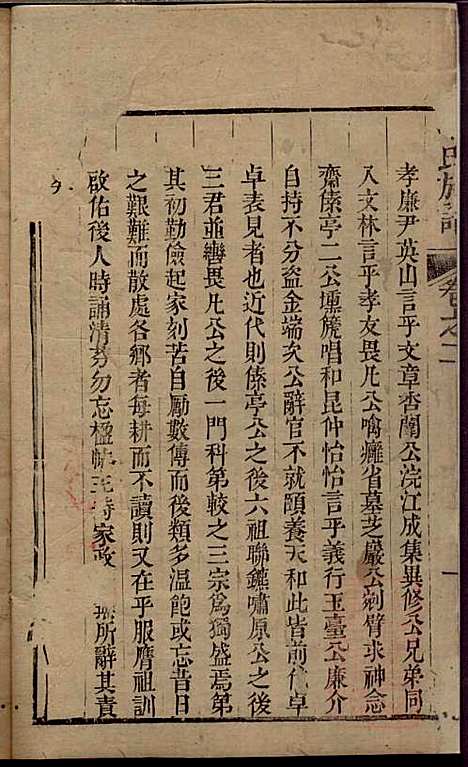 氏族譜 卷之二
孝廉尹英山言乎文章杏閣公浣江成集異修公兄弟同
入文林言乎孝友畏凡公噙癰省墓芝巖公刲臂求神念
齋傃亭二公壎篪唱和昆仲怡怡言乎義行玉臺公廉介
自持不分盜金端次公辭官不就頤養天和此皆前代卓
卓表見者也近代則傃亭公之後六祖聯鑣嘯原公之後
三君並轡畏凡公之後一門科第較之三宗為獨盛焉第
其初勤儉起家刻苦自勵數傳而後類多温飽或忘昔日
之艱難而散處各鄉者每耕而不讀則又在乎服膺祖訓
啟佑後人時誦清芬勿忘楹帖 家政 所辭其責